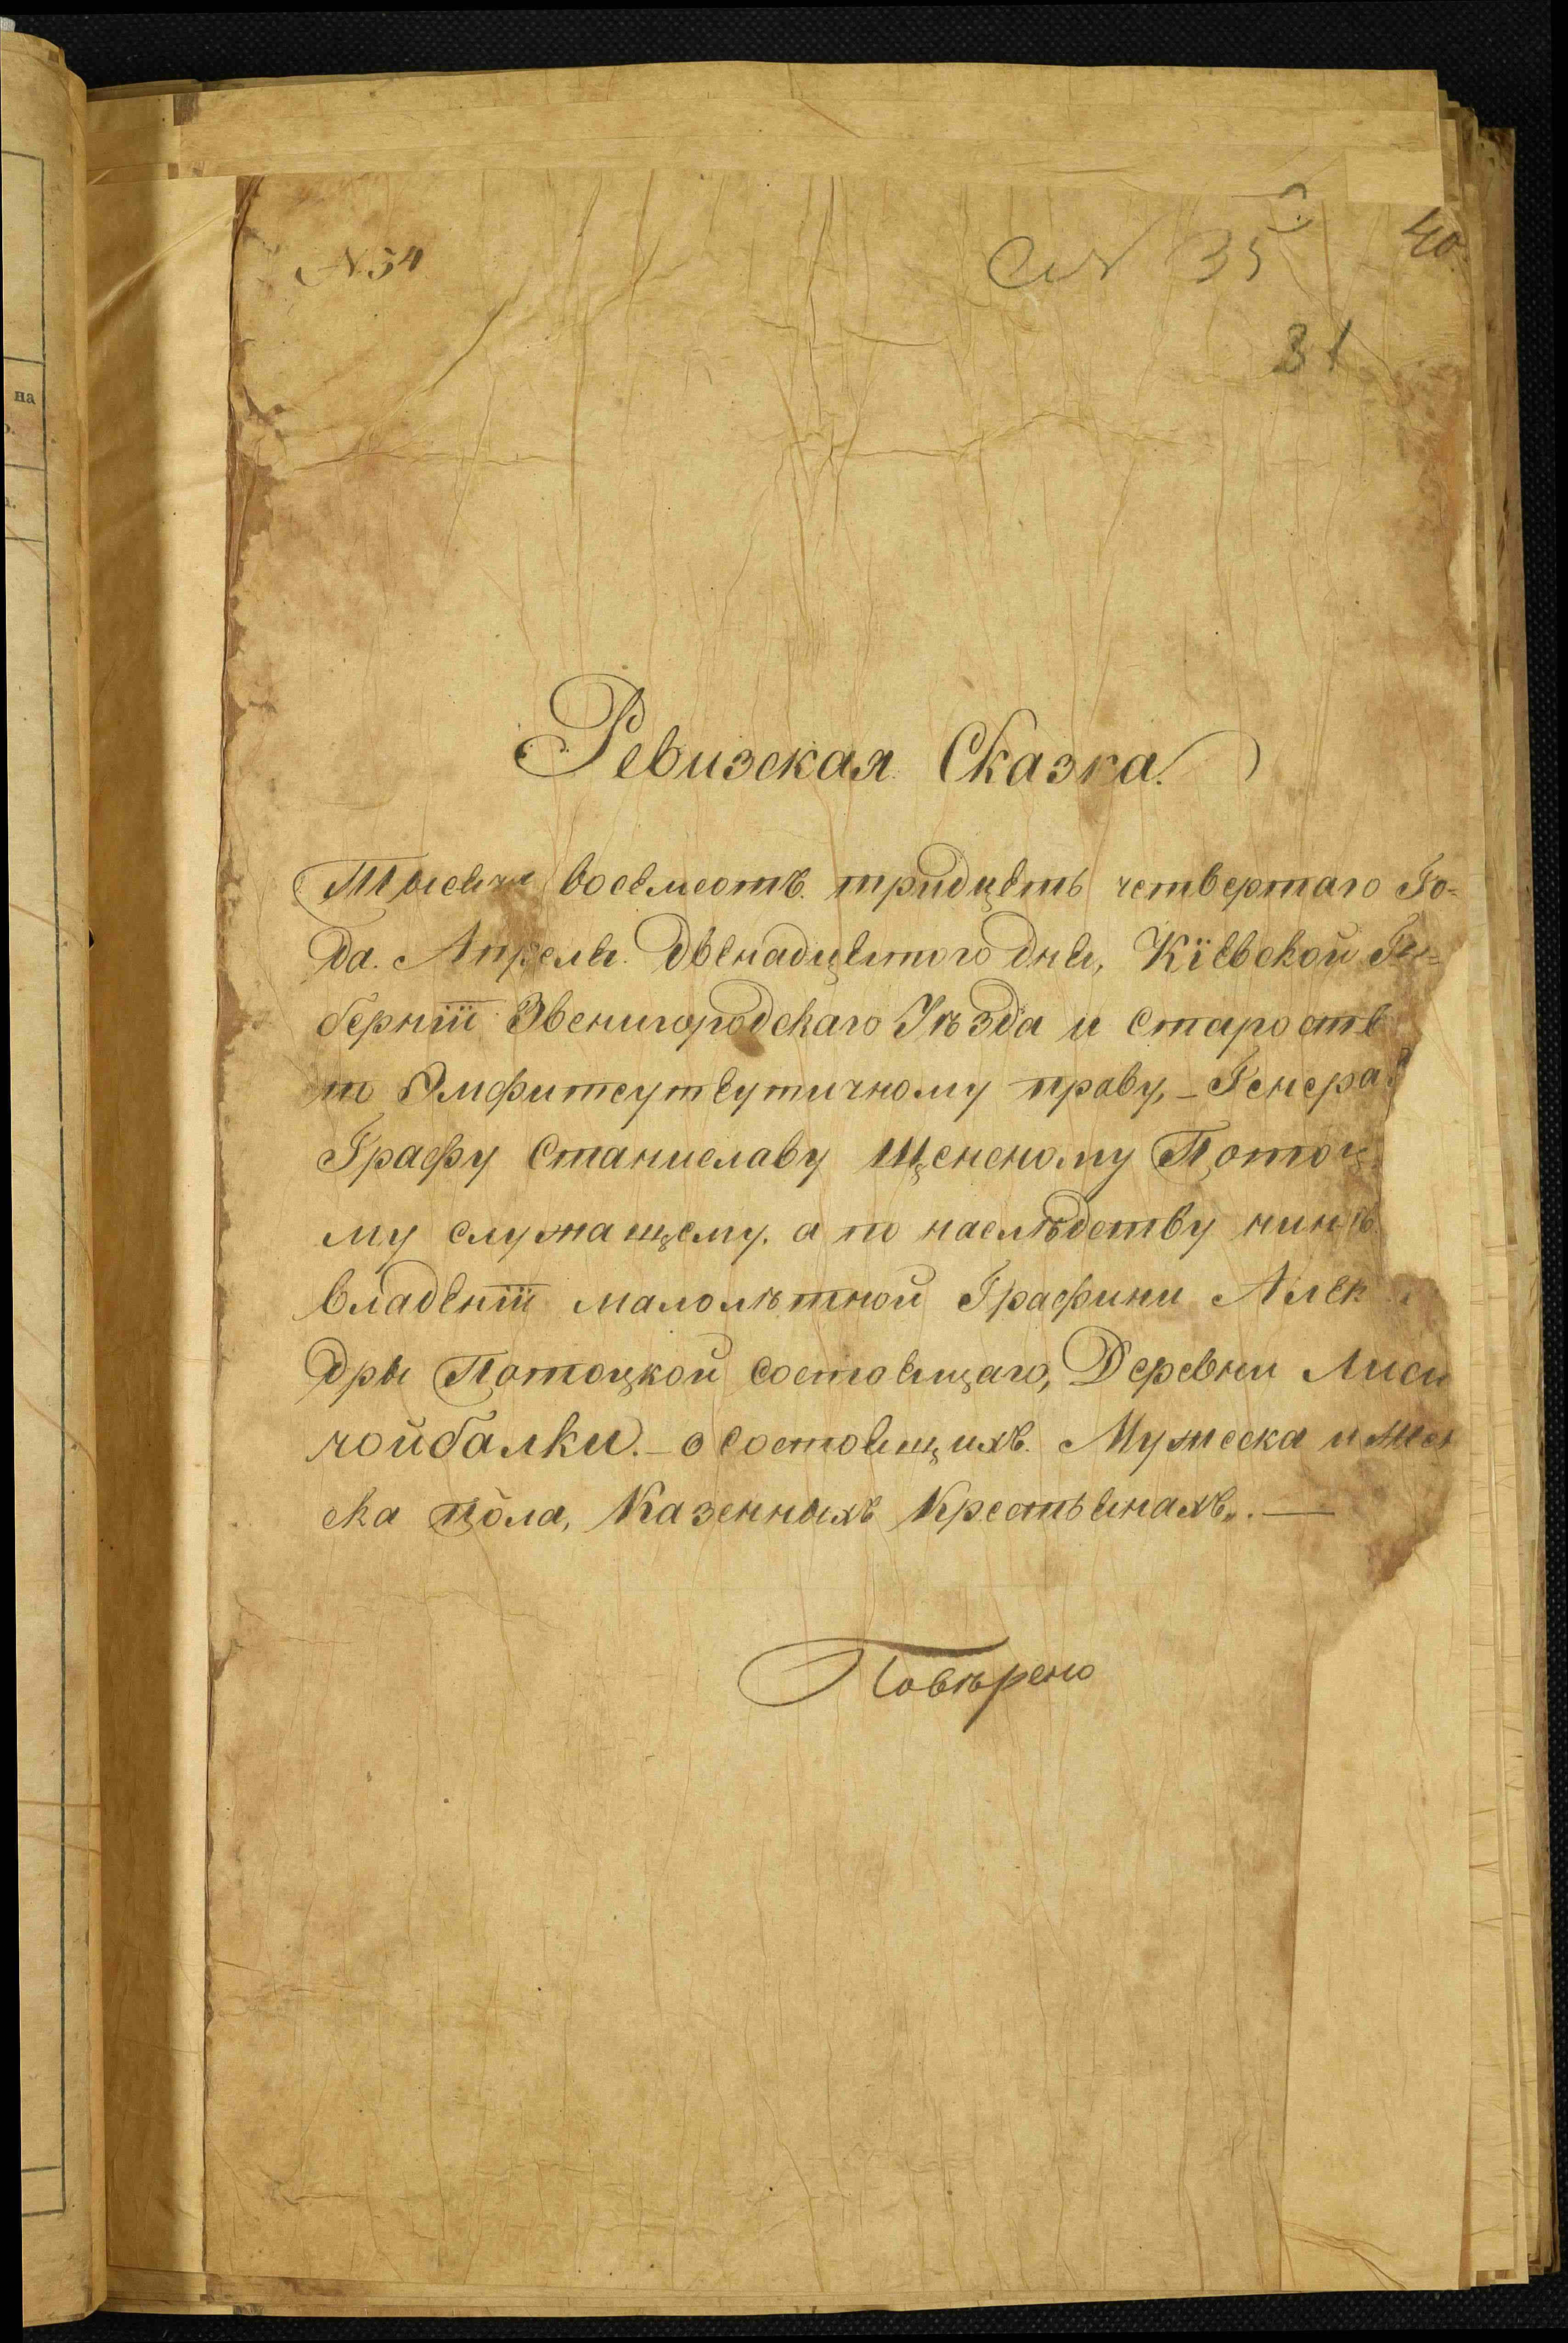 на
№ 54
35
40
31
Ревизская Сказка.
Тысяча восемсотъ тридцеть четвертаго Го=
да. Апреля. двенадцятого дня, Кіевской Гу=
берніи Звенигородскаго Уѣзда и Староств
по Эмфитеутвутичному праву, – Генера
Графу Станиславу Щенсному Потоц
му служащему, а по наслѣдству нинѣ
владеніи малолѣтной Графини Алек
дры Потоцкой состоящаго, Деревни Лиси
чойбалки. – о состоящихъ Мужеска и Жен
ска пола, Казенныхъ Крестьянахъ. —
Повѣрено